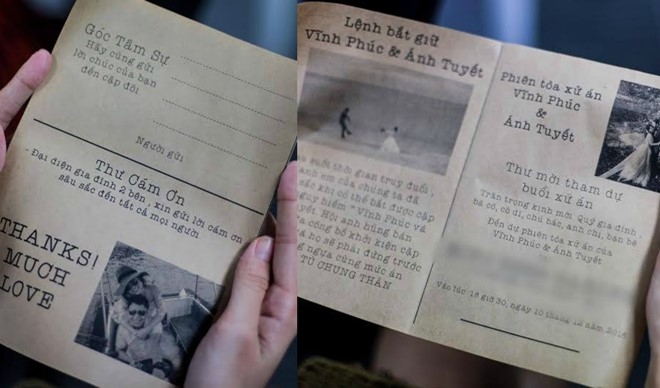 Góc Tâm Sự
Hãy cùng gửi
lời chúc của bạn
đến cặp đôi
Người gửi
Thư Cám Ơn
- Đại diện gia đình 2 bên , xin gửi lời cám ơn
sâu sắc đến tất cả mọi người.
THANKS!
MUCH
LOVE
Lệnh bắt giữ
Vĩnh Phúc & Ánh Tuyết
suốt thời gian truy đuổi,
anh em của chúng ta đã
sắc khi có thể bắt được cặp
nguy hiểm " Vĩnh Phúc và
Tuyết. Hội anh hùng bàn
công bố khởi kiện cặp
và họ sẽ phải đứng trước
ngựa cùng mức án
TÙ CHUNG THÂN
Phiên tòa xử án
Vĩnh Phúc
&
Ánh Tuyết
Thư mời tham dự
buổi xử án
Trân trọng kính mời Quý gia đình ,
bà cô, cô dì, chú bác, anh chị, bạn bè
Đến dự phiên tòa xử án của
Vĩnh Phúc & Ánh Tuyết
Vào lúc :18 giờ 30, ngày 10 tháng 12 năm